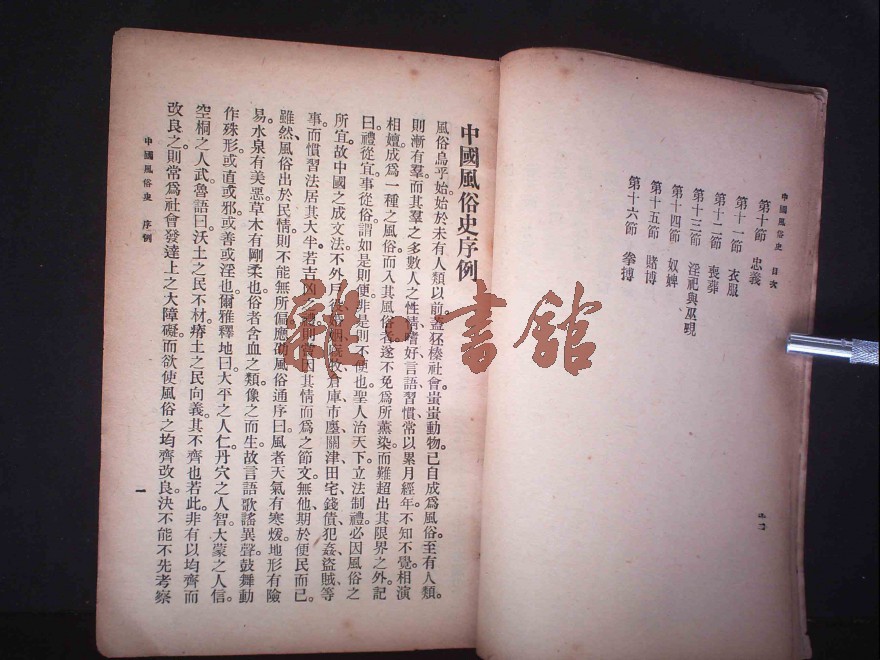 中國風俗史 目次
第十節 忠義
第十一節 衣服
第十二節 喪葬
第十三節 淫祀與巫覡
第十四節 奴婢
第十五節 賭博
第十六節 拳搏
中國風俗史序例
風俗烏乎始。始於未有人類以前。蓋狉榛社會。蚩蚩動物。已自成爲風俗。至有人類。
則漸有羣。而其羣之多數人之性情、嗜好、言語、習慣、常以累月經年。不知不覺。相演
相嬗。成爲一種之風俗。而入其風俗者。遂不免爲所薰染。而難超出其限界之外。記
曰。禮從宜。事從俗。謂如是則便。非是則不便也。聖人治天下。立法制禮。必因風俗之
所宜。故中國之成文法。不外戶役、婚姻、廐牧、倉庫、市廛、關津、田宅、錢債、犯姦、盜賊、等
事。而慣習法居其大半。若吉凶 則 因其情而爲之節文。無他。期於便民而已。
雖然。風俗出於民情。則不能無所偏。應劭風俗通序曰。風者天氣有寒煖。地形有險
易。水泉有美惡。草木有剛柔也。俗者含血之類。像之而生。故言語歌謠異聲。鼓舞動
作殊形。或直或邪。或善或淫也。爾雅釋地曰。大平之人仁。丹穴之人智。大蒙之人信。
空桐之人武。魯語曰。沃土之民不材。瘠土之民向義。其不齊也若此。非有以均齊而
改良之。則常爲社會發達上之大障礙。而欲使風俗之均齊改良。決不能不先考察
中國風俗史 序例
一
雜·書館